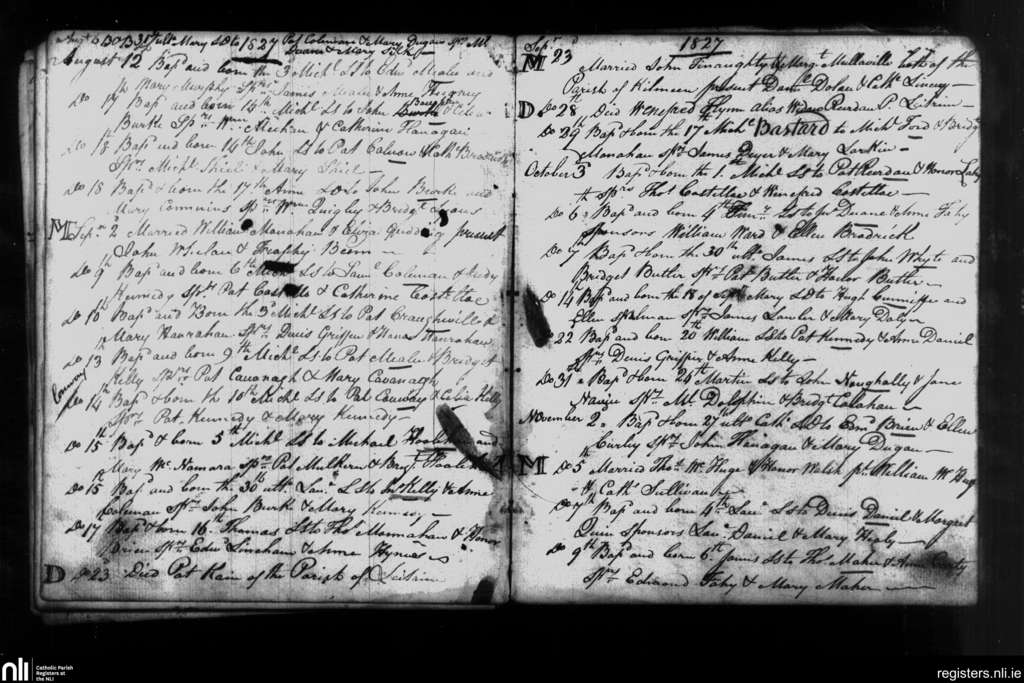 Augt 6 Bap 31st ultº Mary LD to Pat Coleman & Mary Dugan Sprs Ml
1827
Duane & Mary
August 12 Bapd and born the 3d Michl LS to Edwd Mealue and
Mary Murphy Sprs James Mealue & Anne
Do 17th Bapd and born 14th Michl LS to John Burke
Burke Sprs Wm Meehan & Catherine Flanagan
Do 18 Bapd and born 16th John LS to Pat & Cath Brodrick
Sprs Michl Shiel & Mary Shiel
Do 18 Bapd & born the 17th Anne LD to John Burke and
Mary Commins Sprs Wm Quigley & Bridgt Lyons
M Sepr 2 Married William Monahan & Eliza present
John Whelan &
Do 9th Bapd and born 6th LS to Laue Coleman & Judy
Kennedy Sprs Pat Costelloe & Catherine Costelloe
Do 10th Bapd and Born the 3d Michl LS to Pat Craughwill &
Mary Hanrahan Sprs Denis Griffin & Hanrahan
Do 13 Bapd and born 9th Michl LS to Pat Mealue & Bridget
Kelly Sprs Pat Cavanagh & Mary Cavanagh
Conway
Do 14th Bapd & born the 10th Michl LS to Pat & Celia Kelly
Sprs Pat Kennedy & Mary Kennedy
Do 15th Bapd & born 5th Michl LS to Michael and
Mary McNamara Sprs Pat Mulkern & Bridgt
Do 15 Bapd and born the 30th ultº Laue LS to Jno Kelly & Anne
Coleman Sprs John Burke & Mary Kennedy
Do 17th Bapd & born 16th Thomas LS to Thos Monnahan & Honor
Brien Sprs Edwd Linehan & Anne Hynes
D Do 23d Died Pat Kain of the Parish of Leitrim
1827
M Sepr 23d
Married John Finaughty & Margt Mullaville both of the
Parish of Kilmeen present Danl Dolan & Cath
D Do 28th Died Wenefred Flynn alias Widow Reardan P. Leitrim
Do 29 Bapd & born the 17th Michl Bastard to Michl Ford & Bridgt
Monahan Sprs James Dwyer & Mary Larkin
October 3d Bapd & born the 1st Michl LS to Pat Reardan & Honor Leahy
Sprs Thos Costelloe & Winefred Costelloe
Do 6th Bapd and born 4th LS to Jno Duane & Anne Fahy
Sponsors William Ward & Ellen Brodrick
Do 7th Bapd & born the 30th ultº James LS to John Whyte and
Bridget Butler Sprs Pat Butler & Honor Butler
Do 14th Bapd and born the 18 of Sepr Mary LD to Hugh Cunniffe and
Ellen Spelman Sprs James Lawlor & Mary Dolan
22 Bapd and born 20th William LS to Pat Kennedy & Anne Daniel
Sprs Denis Griffin & Anne Kelly
Do 31st Bapd & born 29th Martin LS to John Noughally & Jane
Sprs Ml Dolphin & Bridgt Callahan
November 2d Bapd & born 27th ultº Cath LD to Edmd Brien & Ellen
Curley Sprs John Flanagan & Mary Dugan
M Do 5th Married Thos McHugo & Honor Walsh pt William McHugo
& Cath Sullivan
Do 7th Bapd and born 4th Laue LS to Denis Daniel & Margret
Quin Sponsors Laue Daniel & Mary Healy
Do 9th Bapd and born 6th James LS to Thos Maher & Anne Carty
Sprs Edmond Fahy & Mary Maher
nli
Catholic Parish
Registers at
the NLI
registers.nli.ie